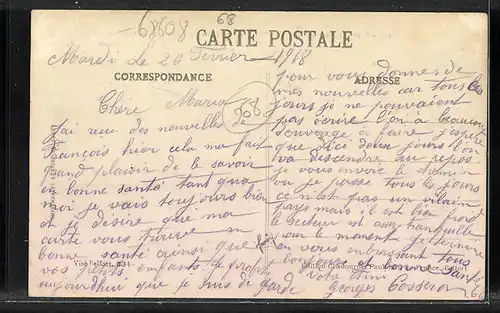 68608
68
CARTE POSTALE
Mardi Le 26 Février 1918
CORRESPONDANCE
Chère Maria
J'ai reçu des nouvelles de
François hier cela ma fait
grand plaisir de le savoir
en bonne santé tant qua
moi je vais toujours bien
et je désire que ma
carte vous trouve en
bonne santé ainsi que
vos enfants je profite
aujourdhui que je suis de garde
68
ADRESSE
pour vous donner de
mes nouvelles car tous les
jours je ne pouvaient
pas écrire l'on a beaucoup
d'ouvrage à faire j'espère
que d'ici deux jours l'on
va descendre au repos
je vous envoie le chemin
ou je passe tous les jours
ce n'est pas un vilain
pays mais il est bien froid
le secteur est assez tranquille
pour le moment je termine
en vous embrassant tous
et bonne santé
Votre ami
Georges